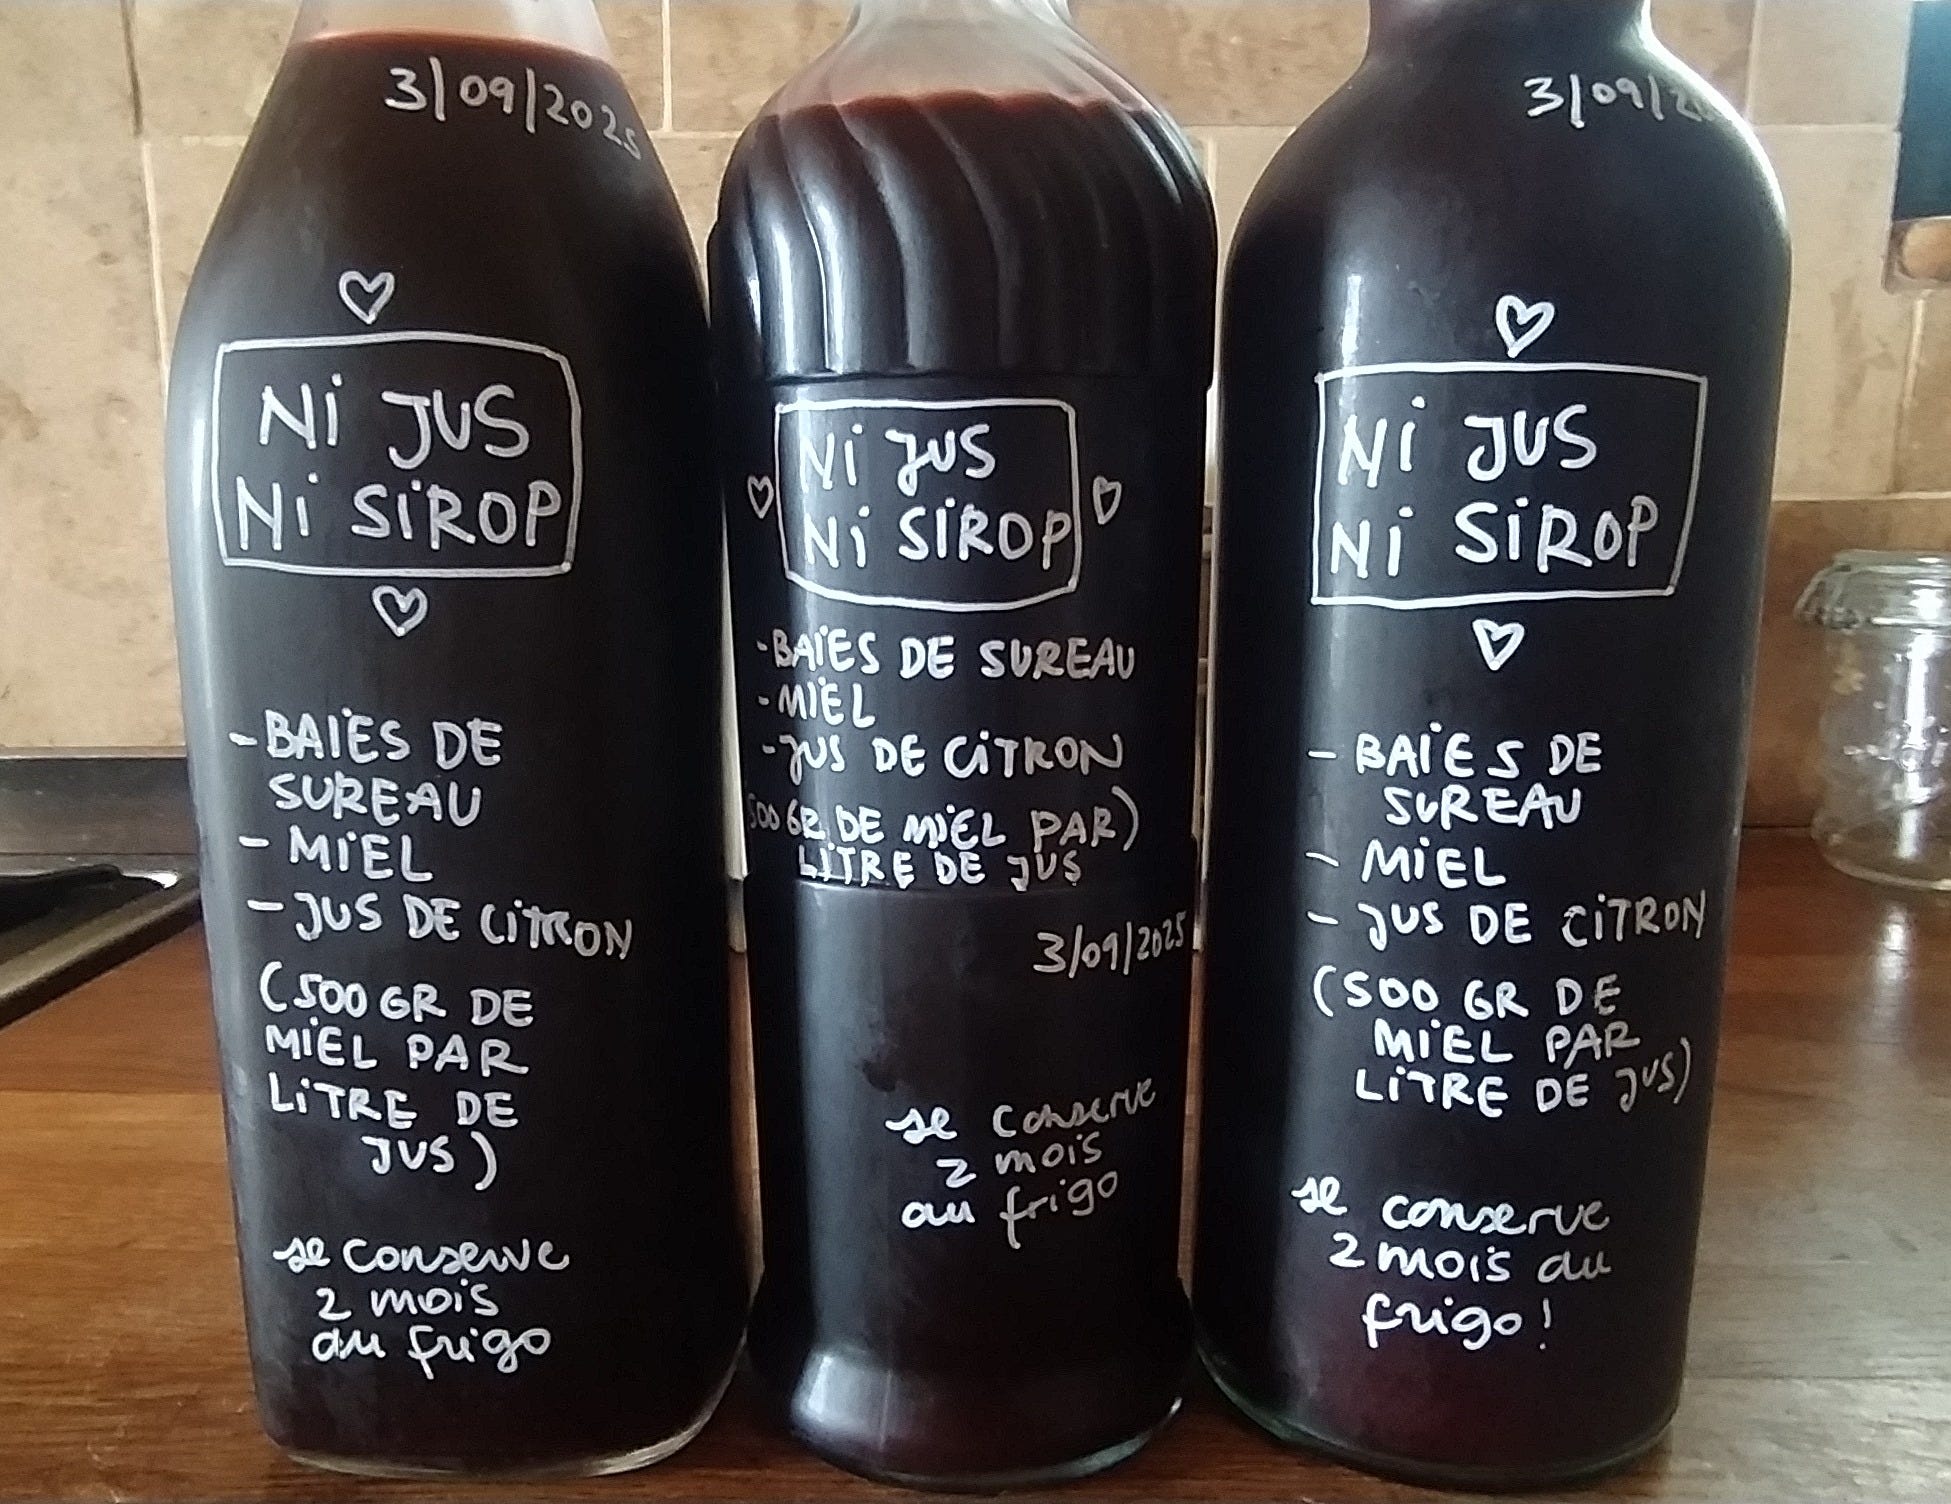 3/09/2025
NI JUS
NI SIROP
- BAIES DE
SUREAU
- MIEL
- JUS DE CITRON
(500 GR DE
MIEL PAR
LITRE DE
JUS)
se conserve
2 mois
au frigo
NI JUS
NI SIROP
- BAIES DE SUREAU
- MIEL
- JUS DE CITRON
500 GR DE MIEL PAR)
LITRE DE JUS
3/09/2025
se conserve
2 mois
au frigo
3/09/2
NI JUS
NI SIROP
- BAIES DE
SUREAU
- MIEL
- JUS DE CITRON
(500 GR DE
MIEL PAR
LITRE DE JUS)
se conserve
2 mois au
frigo !